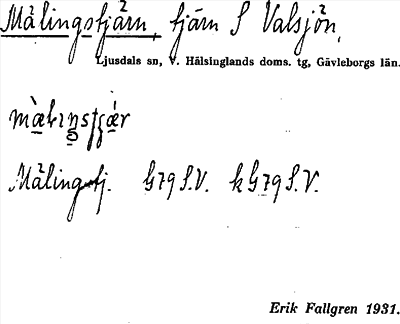 Målingstjärn, tjärn S Valsjön,
Ljusdals sn, V. Hälsinglands doms. tg, Gävleborgs län.
Målingstj. G79 S.V. k G79 S.V.
Erik Fallgren 1931.